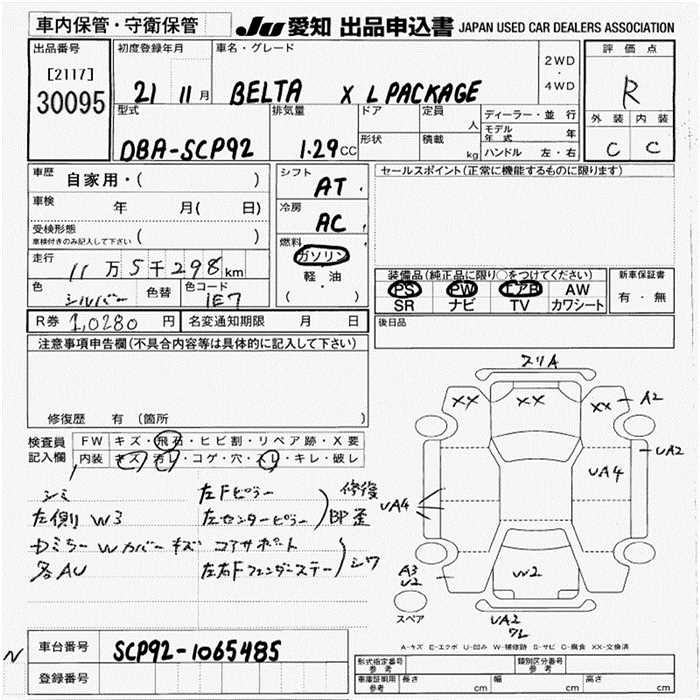 車内保管・守衛保管
JU 愛知 出品申込書 JAPAN USED CAR DEALERS ASSOCIATION
出品番号
[2117]
30095
初度登録年月
21 11月
車名・グレード
BELTA X L PACKAGE
2WD
・
4WD
評価点
R
外装 内装
C C
型式
DBA-SCP92
排気量
1.29CC
ドア
形状
定員
人
積載
kg
ディーラー・並行
モデル
年式 年
ハンドル 左・右
車歴 自家用・( )
車検 年 月( 日)
受検形態
車検付きのみ記入して下さい ( )
走行 11万5千298km
色 シルバー 色替 色コード 1E7
R券 10280 円 名変通知期限 月 日
シフト
AT
冷房
AC
燃料
ガソリン
軽・油
( ・ )
セールスポイント(正常に機能するものに限ります)
装備品(純正品に限り○をつけてください)
PS PW エアB AW
SR ナビ TV カワシート
新車保証書
有・無
後日品
注意事項申告欄(不具合内容等は具体的に記入して下さい)
修復歴 有(箇所 )
検査員
記入欄
FW キズ・飛石・ヒビ割・リペア跡・X要
内装 キズ・汚レ・コゲ・穴・スレ・キレ・破レ
シミ 左Fピラー
左側リW3 左センターピラー
修復
歪
各AU 左右Fフェンダーステー
コアサポート
スリA
XX XX XX A2
UA2
UA4
UA4
A3
U2
W2
スペア
UA2
ワレ
A-キズ E-エクボ U-凹み W-補修跡 S-サビ C-腐食 XX-交換済
N
車台番号 SCP92-1065485
登録番号
形式指定番号
参考
類別区分番号
参考
車庫証明用
参考
長さ cm 幅 cm 高さ cm